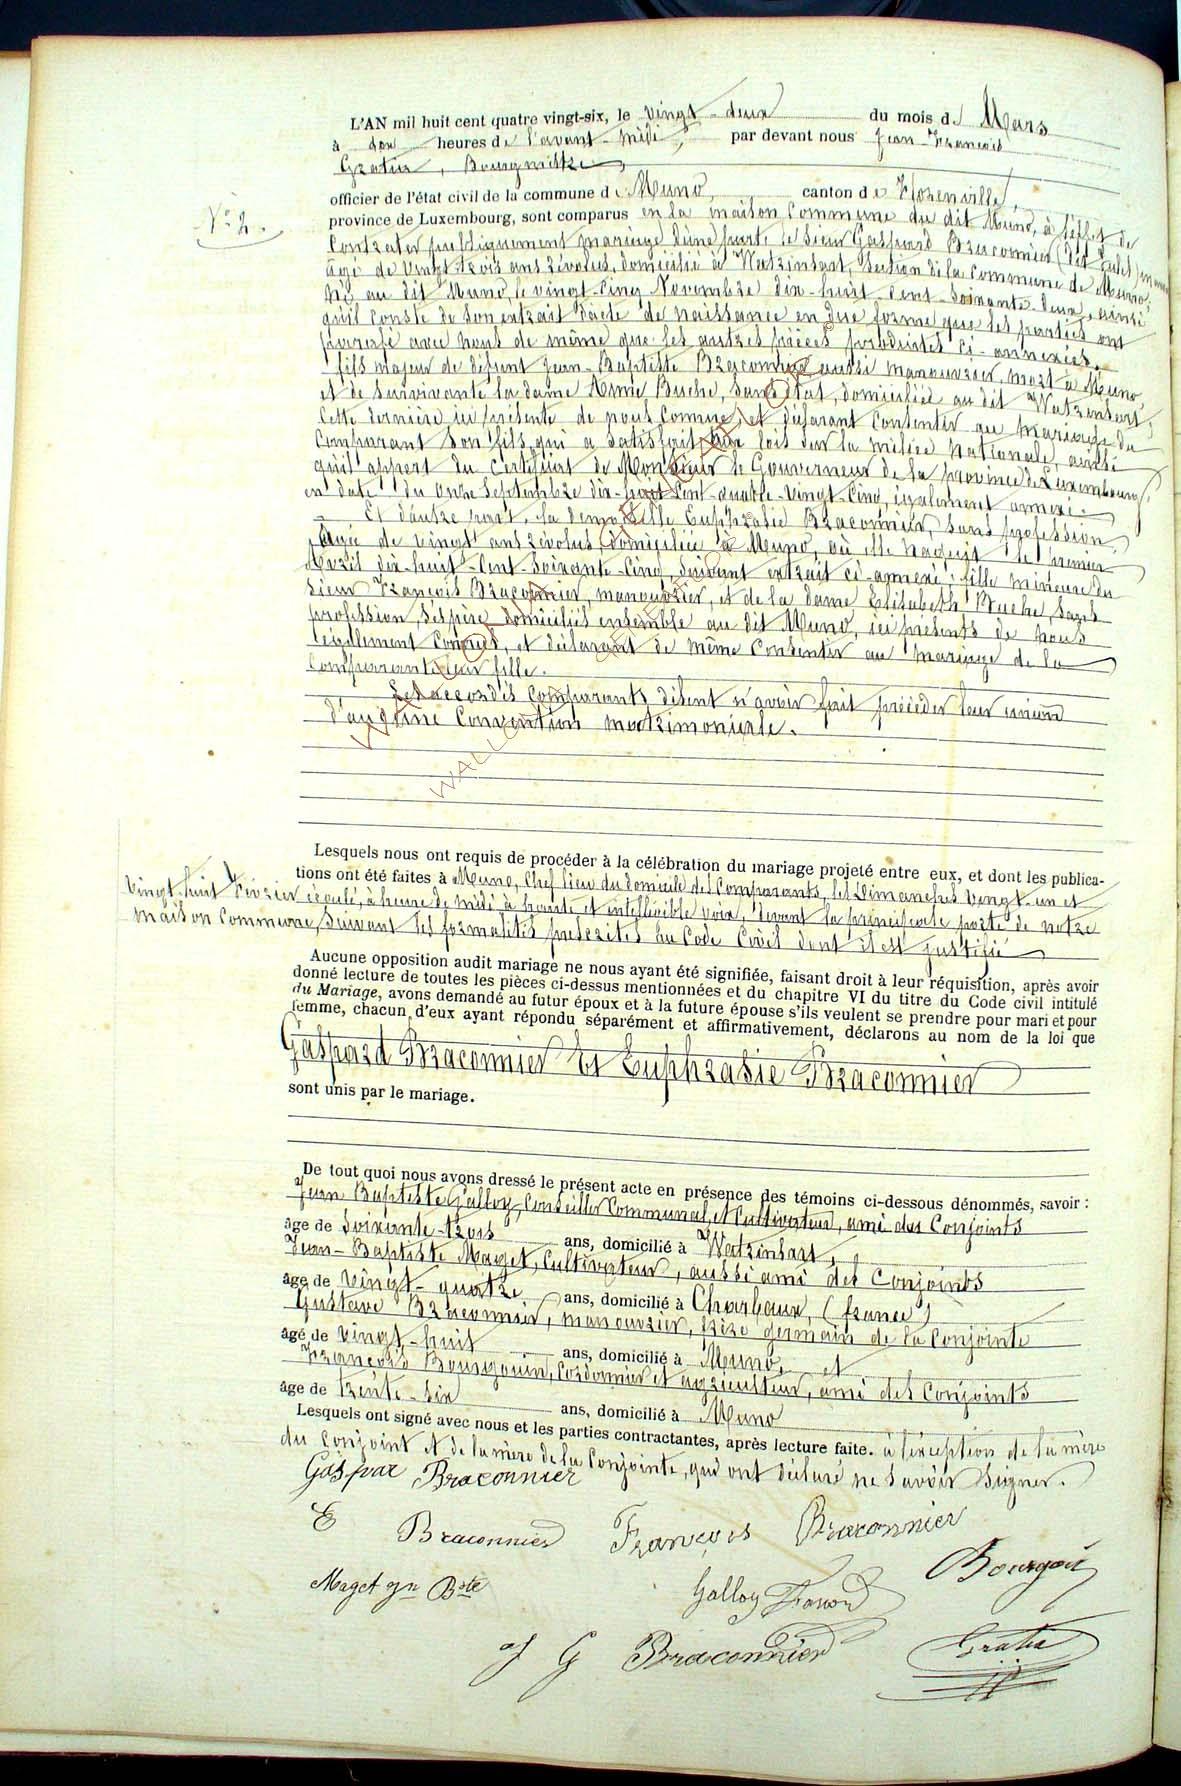 L'AN mil huit cent quatre vingt-six, le vingt-deux du mois de Mars
à dix heures de l'avant-midi, par devant nous Jean-François
Gratia, Bourgmestre
officier de l'état civil de la commune de Muno, canton de Florenville,
N° 2.
province de Luxembourg, sont comparus en la maison Commune du dit Muno, à l'effet de
Contracter publiquement mariage d'une part, le sieur Gaspard Braconnier (dit
âgé de Vingt-trois ans révolus, domicilié à Watrinsart, Section de la Commune de Muno,
Né au dit Muno, le vingt-Cinq Novembre dix-huit-Cent-Soixante-Deux, ainsi
qu'il Conste de son extrait d'acte de naissance en due forme que les parties ont
paraphé avec nous de même que les autres pièces produites ci-annexées.
fils majeur de défunt Jean-Baptiste Braconnier aussi manouvrier, mort à Muno,
et de survivante la dame Anne Buche, Sans état, domiciliée au dit Watrinsart,
Cette dernière ici présente de nous Connue, et déclarant Consentir au mariage du
Comparant son fils, qui a satisfait aux lois sur la milice Nationale, ainsi
qu'il appert du Certificat de Monsieur le Gouverneur de la province de Luxembourg,
en date du Onze Septembre dix-huit-Cent-quatre-Vingt-Cinq, également annexé.
Et d'autre part, la demoiselle Euphrasie Braconnier, Sans profession,
Agée de vingt ans révolus, domiciliée à Muno, où elle naquit le premier
Avril dix-huit-Cent-Soixante-Cinq, suivant extrait ci-annexé; fille mineure du
Sieur François Braconnier, manouvrier, et de la dame Elisabeth Buche, Sans
profession, domiciliés ensemble au dit Muno, ici présents de nous
légallement Connus, et déclarant de même Consentir au mariage de la
Comparante leur fille.
Les accordés Comparants disent n'avoir fait précéder leur union
d'aucune Convention matrimoniale.
Lesquels nous ont requis de procéder à la célébration du mariage projeté entre eux, et dont les publica-
tions ont été faites à Muno, Chef lieu du domicile des Comparants, les Dimanches Vingt-un et
vingt-huit Février écoulé, à heure de midi à haute et intelligible voix, devant la principale porte de notre
maison Commune, Suivant les formalités prescrites au Code Civil dont il est justifié
Aucune opposition audit mariage ne nous ayant été signifiée, faisant droit à leur réquisition, après avoir
donné lecture de toutes les pièces ci-dessus mentionnées et du chapitre VI du titre du Code civil intitulé
du Mariage, avons demandé au futur époux et à la future épouse s'ils veulent se prendre pour mari et pour
femme, chacun d'eux ayant répondu séparément et affirmativement, déclarons au nom de la loi que
Gaspard Braconnier Et Euphrasie Braconnier
sont unis par le mariage.
De tout quoi nous avons dressé le présent acte en présence des témoins ci-dessous dénommés, savoir :
Jean Baptiste Galloy, Conseiller Communal, et Cultivateur, ami des Conjoints
âge de Soixante-trois ans, domicilié à Watrinsart,
Jean-Baptiste Maget, Cultivateur, aussi ami des Conjoints
âge de vingt-quatre ans, domicilié à Charbeaux, (france)
Gustave Braconnier, manouvrier, frère germain de la Conjointe
âge de vingt-huit ans, domicilié à Muno, et
François Bourgouin, Cordonnier et agriculteur, ami des Conjoints
âge de trente-six ans, domicilié à Muno
Lesquels ont signé avec nous et les parties contractantes, après lecture faite. à l'exception de la mère
du Conjoint et de la mère de la Conjointe, qui ont déclaré ne savoir signer.
Gaspar Braconnier
E Braconnier François Braconnier
Maget Jn Bste Galloy Bourgoin
J G Braconnier Gratia